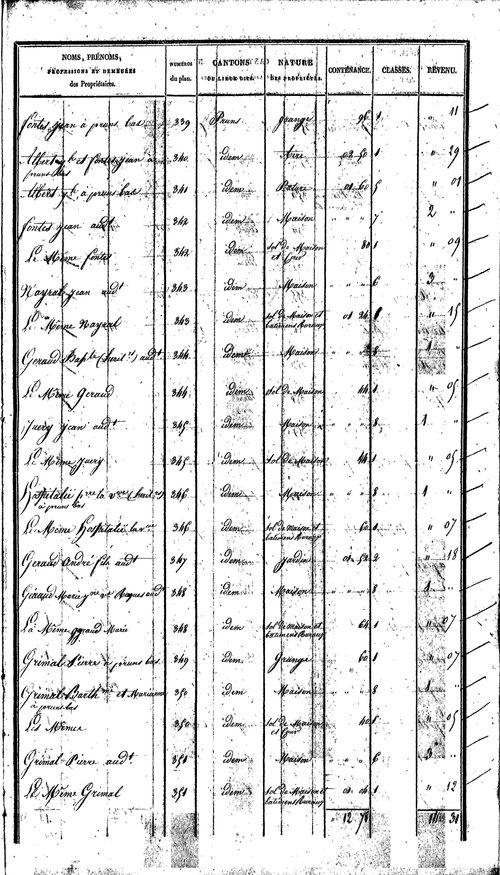 NOMS, PRÉNOMS, PROFESSIONS ET DEMEURES des Propriétaires. NUMÉROS du plan. CANTONS OU LIEUX DITS. NATURE DES PROPRIÉTÉS. CONTENANCE. CLASSES. REVENU.
fontes jean à pruns bas 339 Pruns grange 96 1 " 11
Albert et fontes jean à pruns bas 340 idem Aire 02 50 1 " 29
Albert à pruns bas 341 idem Pature 01 60 5 " 01
fontes jean audt 342 idem Maison " " " 7 2 "
Le Même fontes 342 idem sol de Maison et Cour 80 1 " 09
Nayral jean audt 343 idem Maison " " " 6 3 "
Le Même Nayral 343 idem sol de Maison et batimens Ruraux 01 24 1 " 15
Geraud Bapte audt 344 idem Maison " " " 8 1 "
Le Même Geraud 344 idem sol de Maison 44 1 " 05
Juery jean audt 345 idem Maison " " " 8 1 "
Le Même Juery 345 idem sol de Maison 44 1 " 05
Hospitalié pre la vve à pruns bas 346 idem Maison " " " 8 1 "
Le Même Hospitalié la vve 346 idem sol de maison et batimens Ruraux 60 1 " 07
Geraud André fils audt 347 idem Jardin 01 52 2 " 18
Giraud Marie audt 348 idem Maison " " " 8 1 "
La Même giraud Marie 348 idem sol de maison et batimens Ruraux 64 1 " 07
Grimal Pierre à pruns bas 349 idem Grange 60 1 " 07
Grimal Barth et à pruns bas 350 idem Maison " " " 8 1 "
Les Mêmes 350 idem sol de Maison et Cour 40 1 " 05
Grimal Pierre audt 351 idem Maison " " " 6 3 "
Le Même Grimal 351 idem sol de Maison et batimens Ruraux 01 04 1 " 12
" 12 78 31